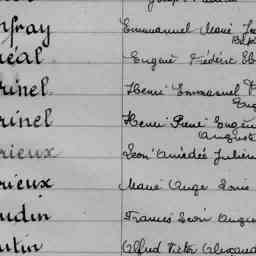 nfray Emmanuel Marie
réal Eugène Frédéric
rinel Henri Emmanuel
rinel Henri René Eugène
Auguste
rieux Léon Amédée Julien
rieux Marie Ange Louis
udin Francis Léon
utin Alfred Victor